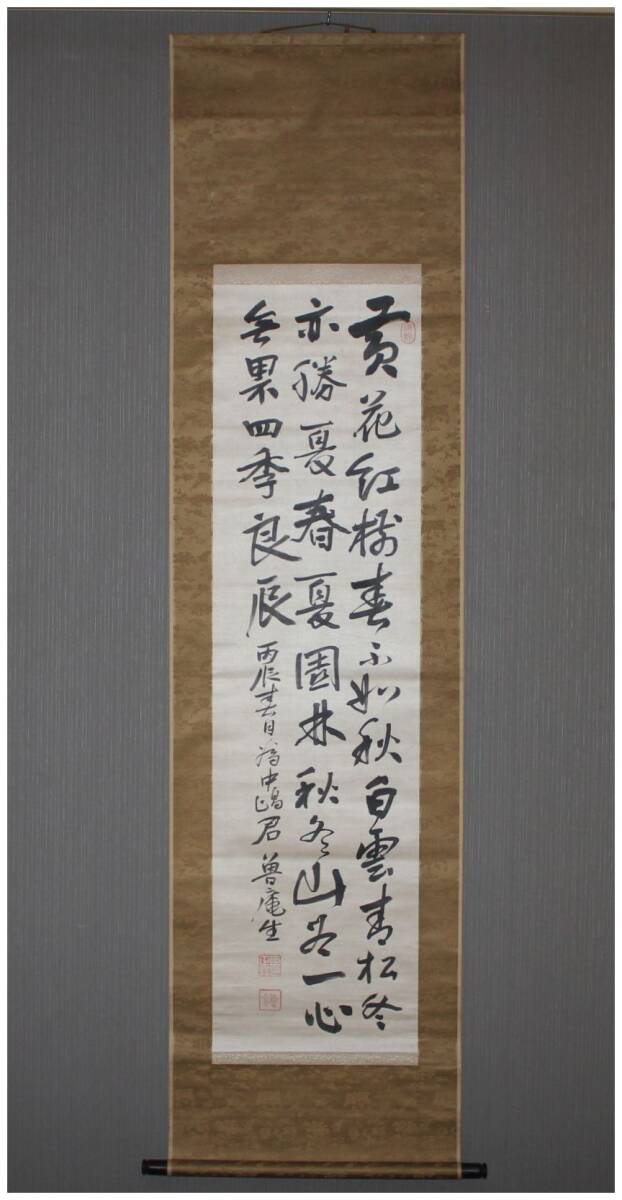 黄花紅樹春不如秋白雲青松冬
亦勝夏春夏園林秋冬山谷一心
無累四季良辰 丙辰春日為中嶋君 魯庵生